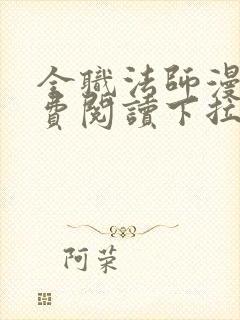 全職法師漫
費閱讀下拉
阿荣